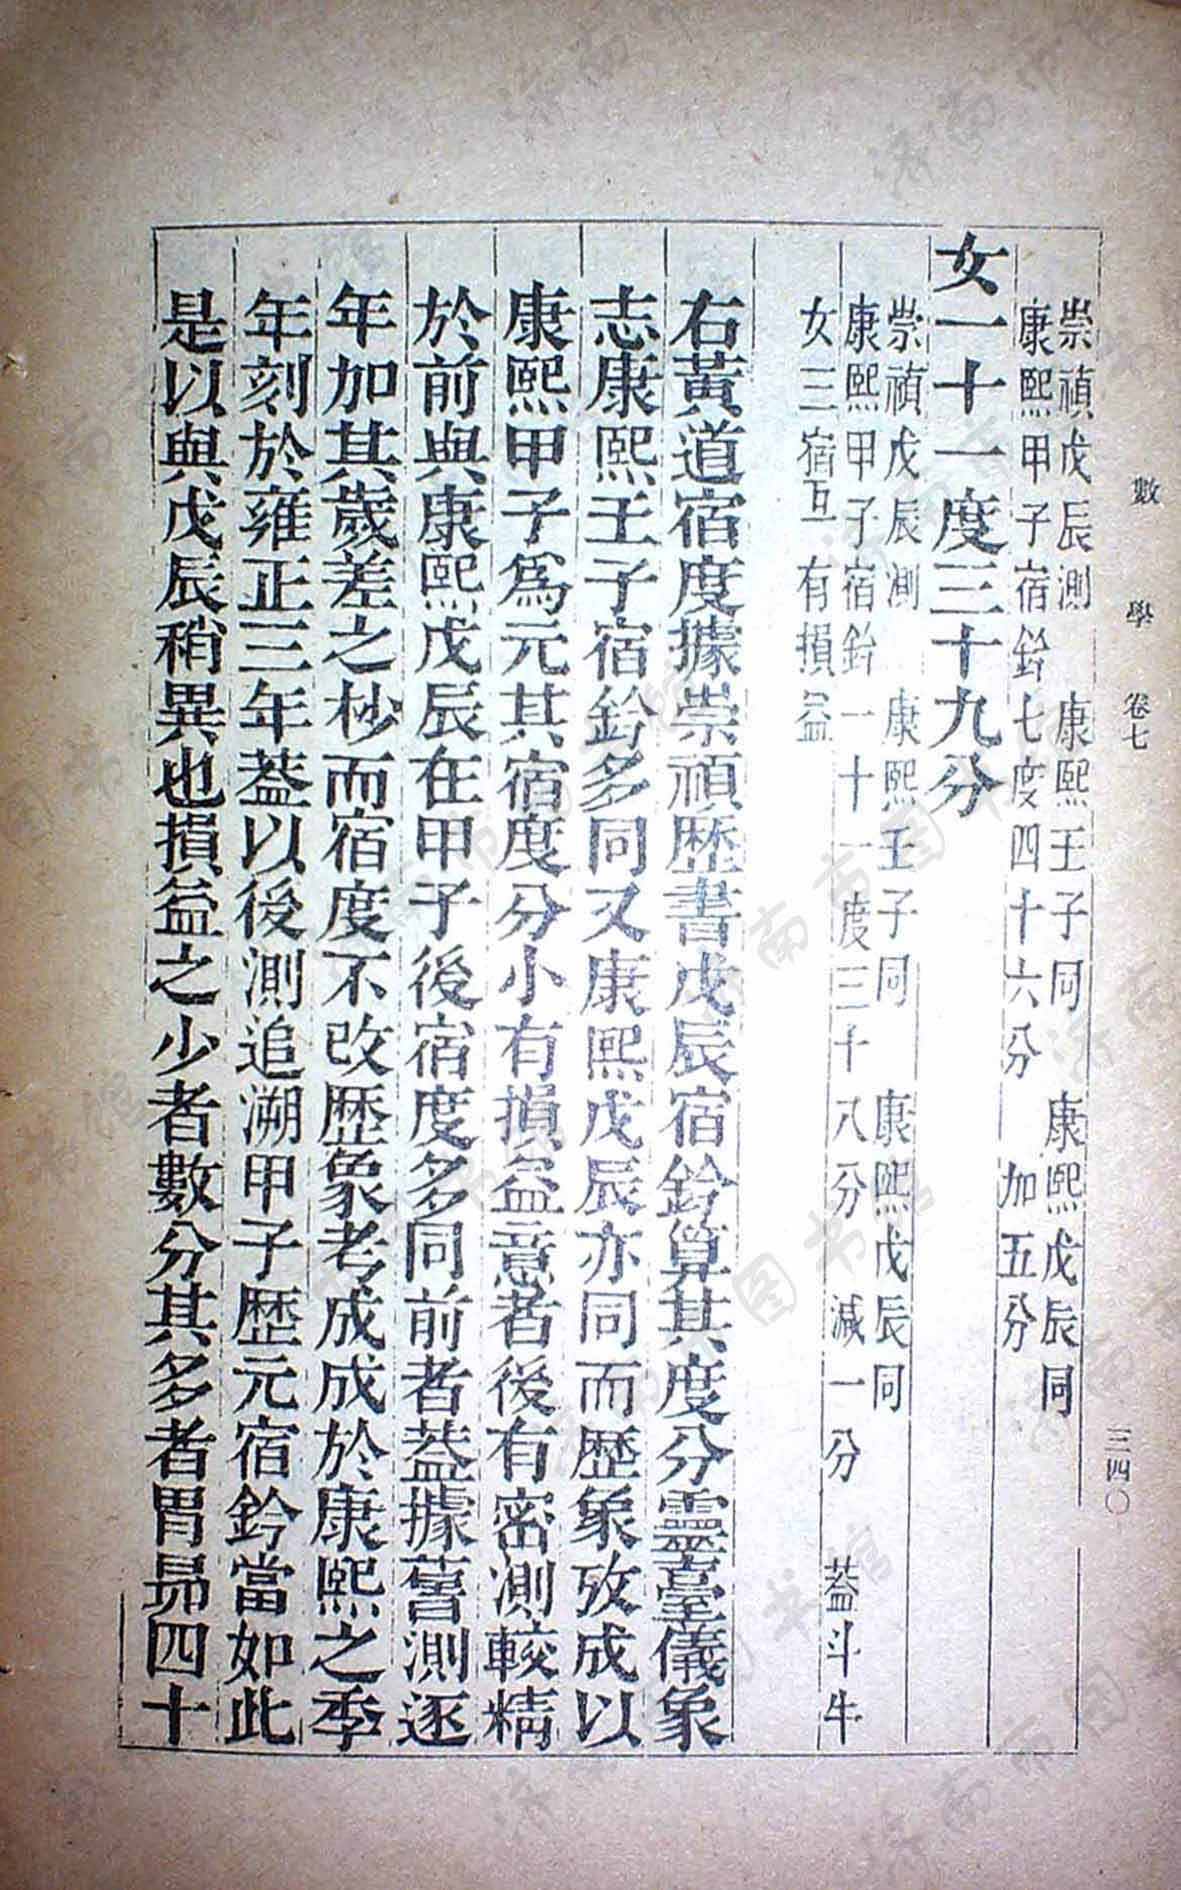 數學 卷七 三四〇
崇禎戊辰測 康熙壬子同 康熙戊辰同
康熙甲子宿鈐七度四十六分 加五分
女一十一度三十九分
崇禎戊辰測 康熙壬子同 康熙戊辰同
康熙甲子宿鈐一十一度三十八分減一分 葢斗牛
女三宿互有損益
右黃道宿度據崇禎歷書戊辰宿鈐算其度分靈臺儀象
志康熙壬子宿鈐多同又康熙戊辰亦同而歷象攷成以
康熙甲子爲元其宿度分小有損益意者後有密測較精
於前與康熙戊辰在甲子後宿度多同前者葢據舊測逐
年加其歲差之杪而宿度不改歷象考成成於康熙之季
年刻於雍正三年葢以後測追溯甲子歷元宿鈐當如此
是以與戊辰稍異也損益之少者數分其多者胃昴四十
济南市图书馆